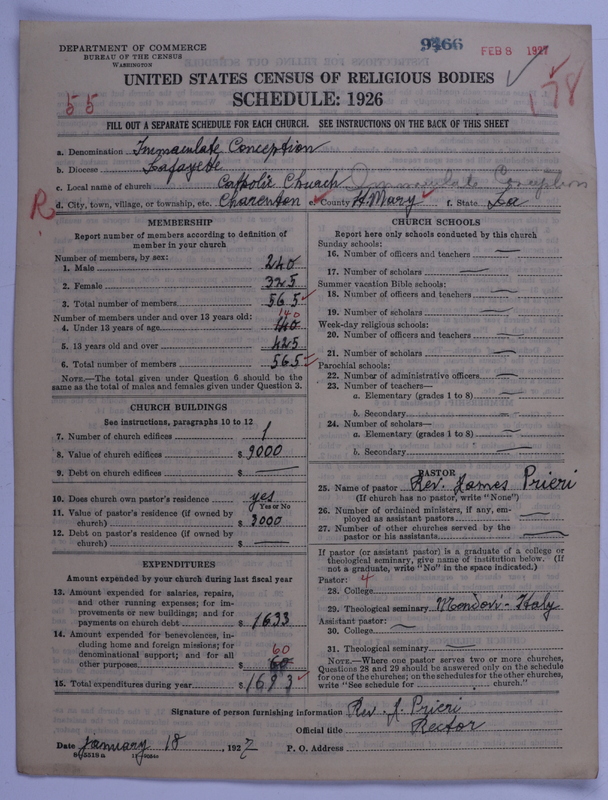 DEPARTMENT OF COMMERCE
BUREAU OF THE CENSUS
WASHINGTON
9466
FEB 8 1927
178
UNITED STATES CENSUS OF RELIGIOUS BODIES
55
SCHEDULE: 1926
FILL OUT A SEPARATE SCHEDULE FOR EACH CHURCH. SEE INSTRUCTIONS ON THE BACK OF THIS SHEET
a. Denomination Immaculate Conception
b. Diocese Lafayette
c. Local name of church Catholic Church Immaculate Conception
R
d. City, town, village, or township, etc. Charenton e. County St. Mary f. State La
MEMBERSHIP
Report number of members according to definition of member in your church
Number of members, by sex:
1. Male 240
2. Female 325
3. Total number of members 565
Number of members under and over 13 years old:
140
4. Under 13 years of age 140
5. 13 years old and over 425
6. Total number of members 565
NOTE.—The total given under Question 6 should be the same as the total of males and females given under Question 3.
CHURCH BUILDINGS
See instructions, paragraphs 10 to 12
7. Number of church edifices 1
8. Value of church edifices $ 9000
9. Debt on church edifices $ —
10. Does church own pastor's residence yes
Yes or No
11. Value of pastor's residence (if owned by church) $ 3000
12. Debt on pastor's residence (if owned by church) $ —
EXPENDITURES
Amount expended by your church during last fiscal year
13. Amount expended for salaries, repairs, and other running expenses; for improvements or new buildings; and for payments on church debt $ 1633
14. Amount expended for benevolences, including home and foreign missions; for denominational support; and for all other purposes $ 60
60
15. Total expenditures during year $ 1693
CHURCH SCHOOLS
Report here only schools conducted by this church
Sunday schools:
16. Number of officers and teachers —
17. Number of scholars —
Summer vacation Bible schools:
18. Number of officers and teachers —
19. Number of scholars —
Week-day religious schools:
20. Number of officers and teachers —
21. Number of scholars —
Parochial schools:
22. Number of administrative officers —
23. Number of teachers—
a. Elementary (grades 1 to 8) —
b. Secondary —
24. Number of scholars—
a. Elementary (grades 1 to 8) —
b. Secondary —
PASTOR
25. Name of pastor Rev. James Prieri
(If church has no pastor, write "None")
26. Number of ordained ministers, if any, employed as assistant pastors —
27. Number of other churches served by the pastor or his assistants —
If pastor (or assistant pastor) is a graduate of a college or theological seminary, give name of institution below. (If not a graduate, write "No" in the space indicated.)
Pastor: 4
28. College
29. Theological seminary Mondovi - Italy
Assistant pastor:
30. College —
31. Theological seminary —
NOTE.—Where one pastor serves two or more churches, Questions 28 and 29 should be answered only on the schedule for one of the churches; on the schedules for the other churches, write "See schedule for church."
Signature of person furnishing information Rev. J. Prieri
Official title Rector
Date January 18, 1927 P. O. Address